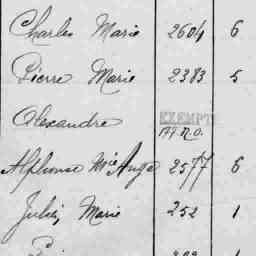 Charles Marie 2604 6
Pierre Marie 2383 5
Alexandre EXEMPT
Alphonse Mie Ange 2577 6
Julien Marie 252 1